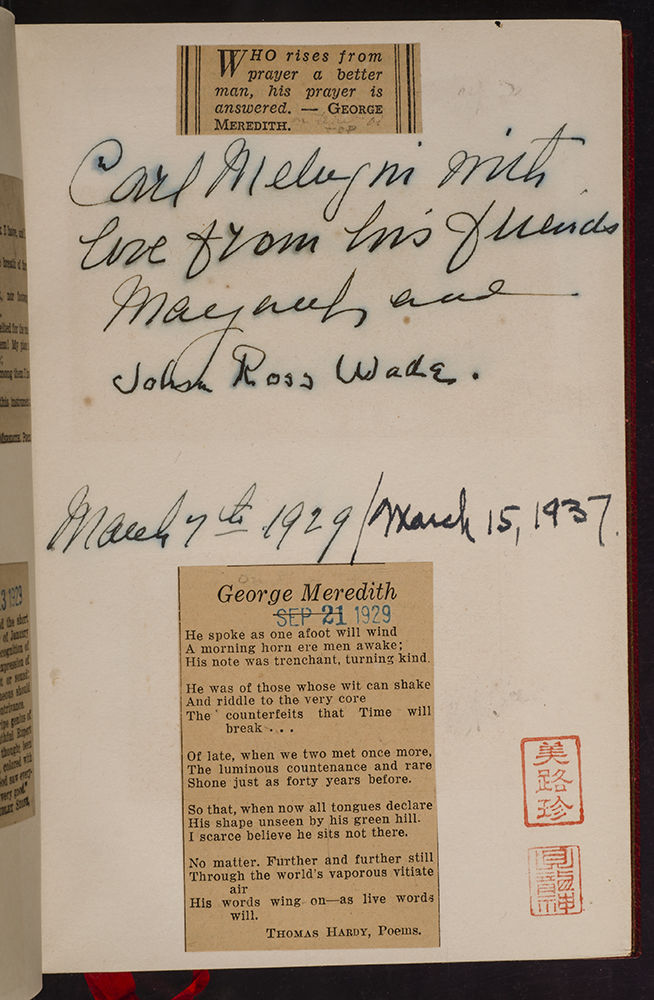 WHO rises from
prayer a better
man, his prayer is
answered. — GEORGE
MEREDITH.
Carl with
love from his friends
Margaret and
John Ross Wade.
March 7th 1929 / March 15, 1937.
George Meredith
SEP 21 1929
He spoke as one afoot will wind
A morning horn ere men awake;
His note was trenchant, turning kind.
He was of those whose wit can shake
And riddle to the very core
The counterfeits that Time will
break . . .
Of late, when we two met once more,
The luminous countenance and rare
Shone just as forty years before.
So that, when now all tongues declare
His shape unseen by his green hill.
I scarce believe he sits not there.
No matter. Further and further still
Through the world's vaporous vitiate
air
His words wing on—as live words
will.
THOMAS HARDY, Poems.
美路珍